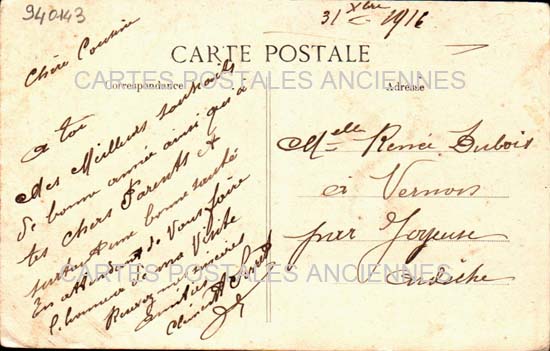 940143
31 Xbre 1916
CARTE POSTALE
CARTES POSTALES ANCIENNES
Correspondance
Adresse
Chère Cousine
a toi
Mes Meilleurs souhaits
de bonne année ainsi qu'a
tes chers Parents et
surtout une bonne santé
En attendant de vous faire
l'honneur d'une Visite
Recevez mes sincères
Amitiés
Clément
Melle Renée Dubois
à Vernon
par Joyeuse
Ardèche
CARTES POSTALES ANCIENNES